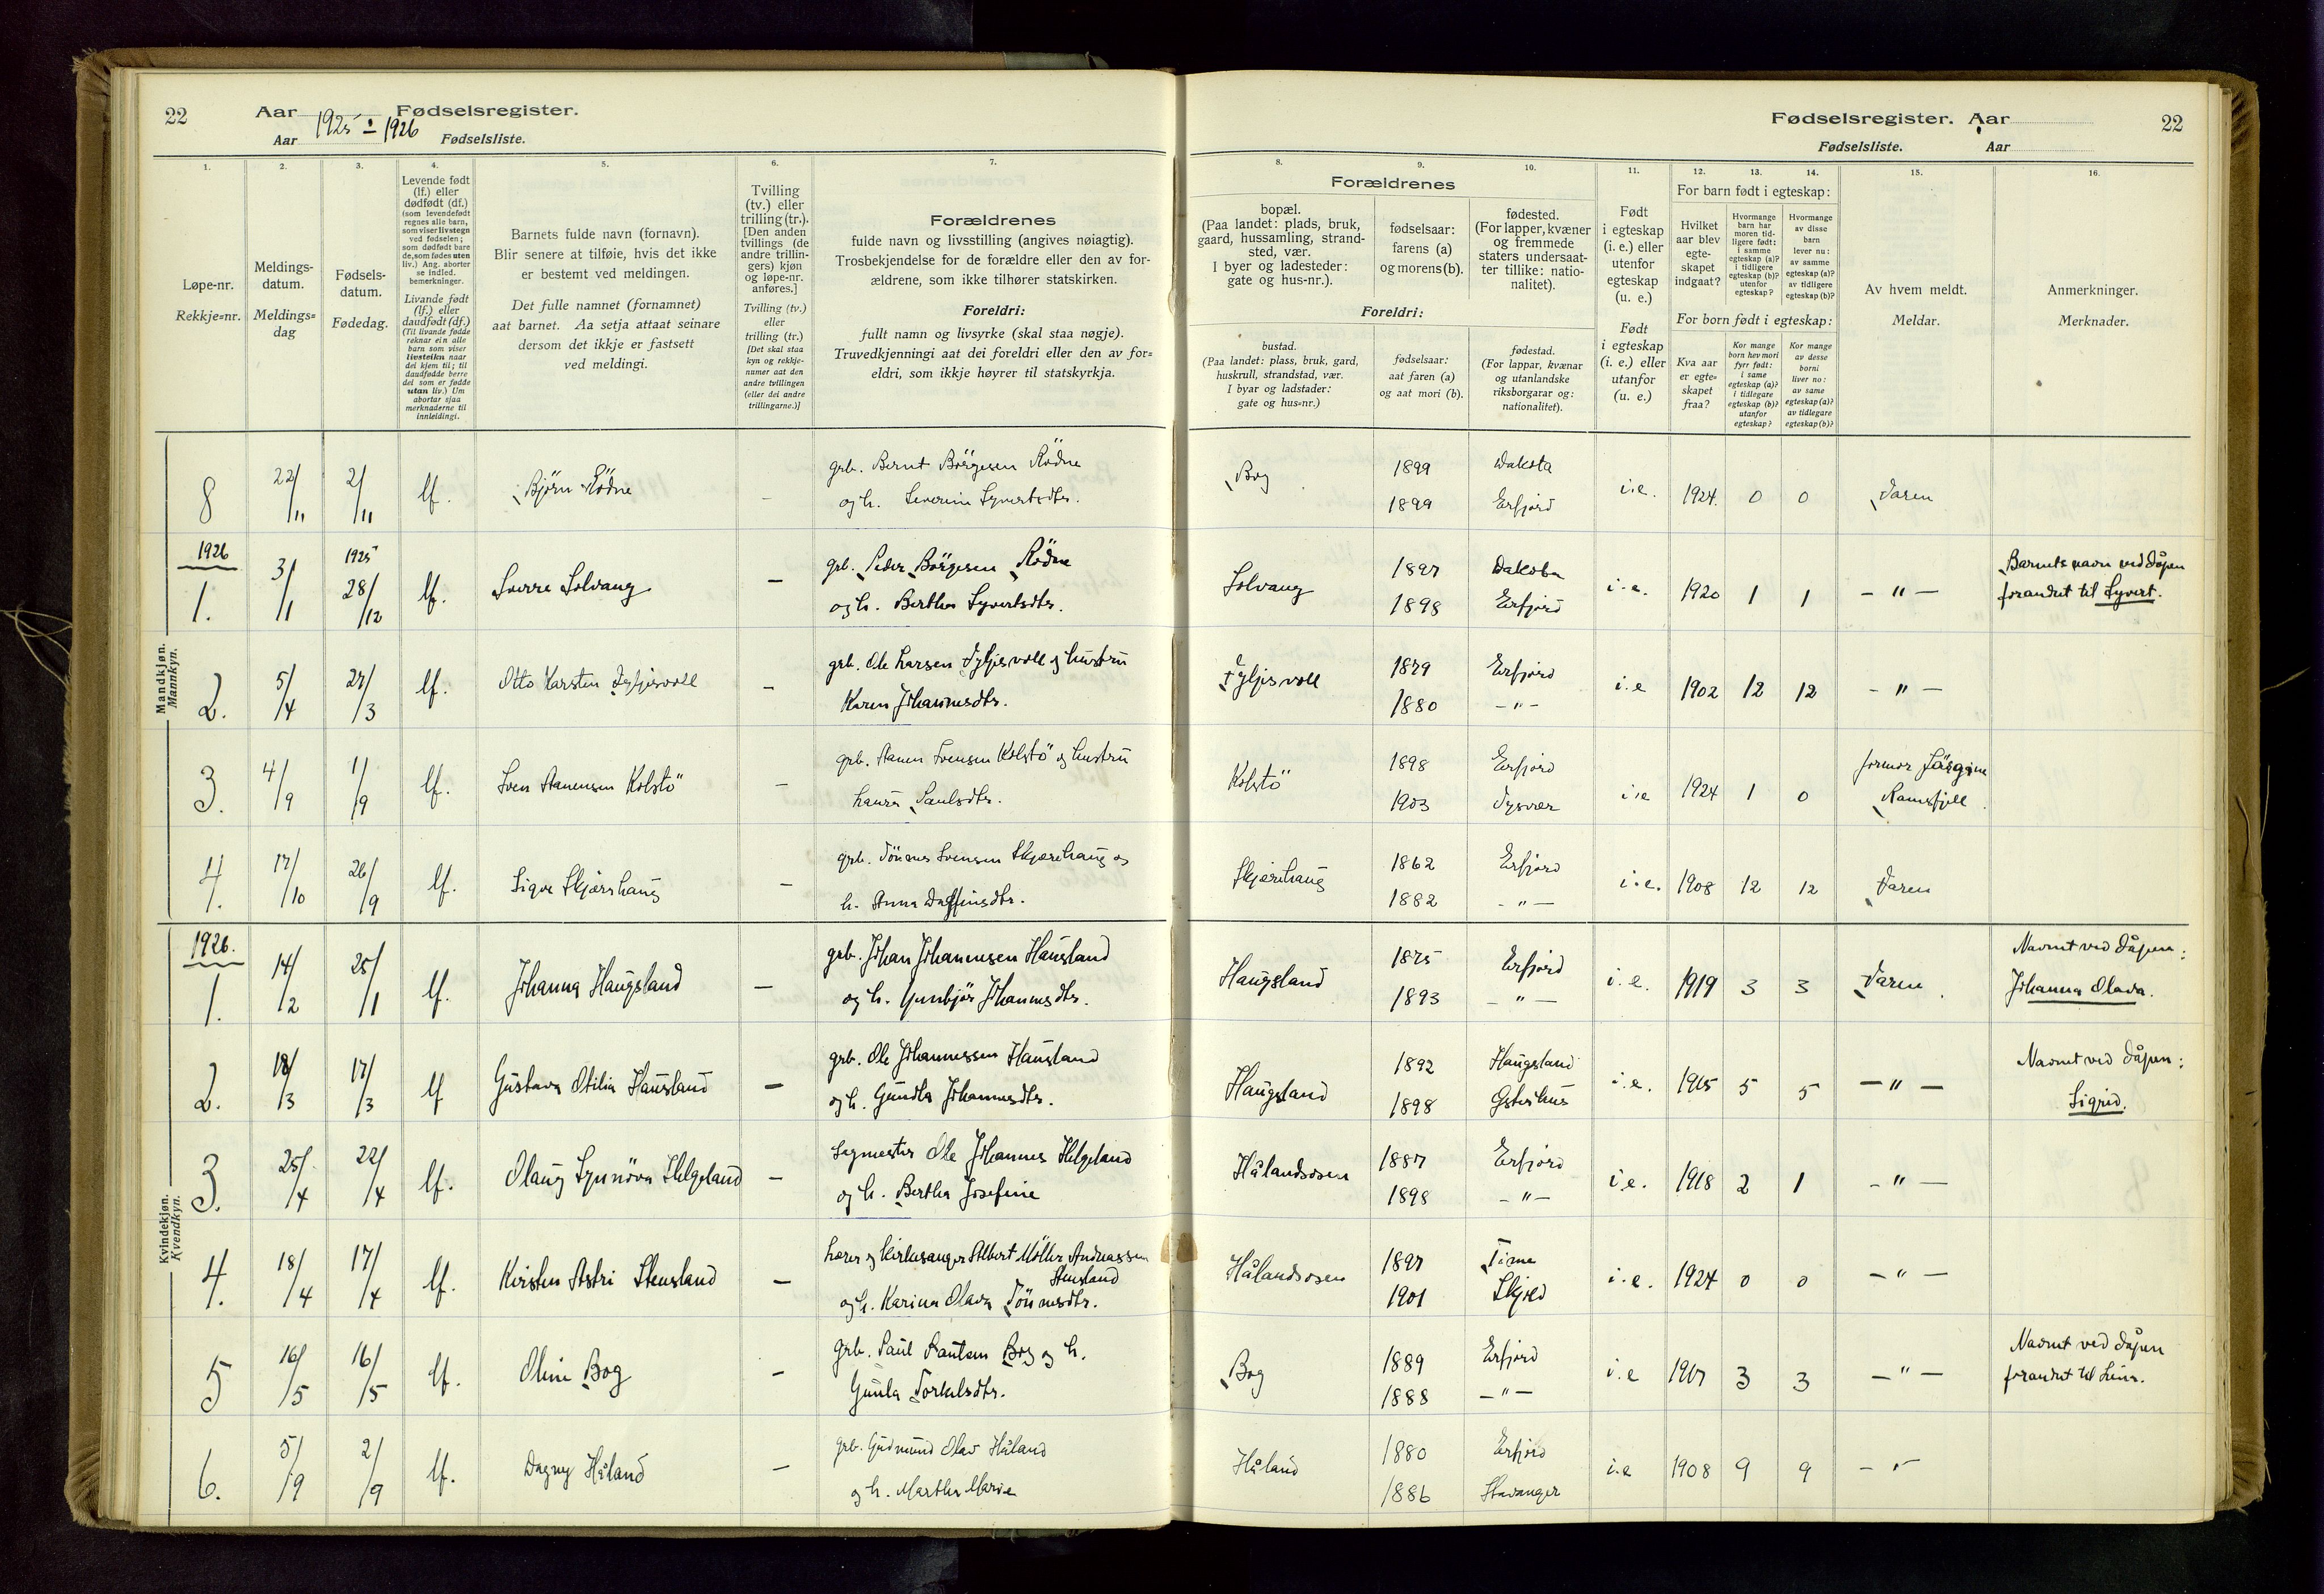 22 Aar 1925 - 1926 Fødselsregister.
Aar Fødselsliste.
Fødselsregister. Aar 22
Fødselsliste. Aar
1. 2. 3. 4. 5. 6. 7. 8. 9. 10. 11. 12. 13. 14. 15. 16.
Løpe-nr.
Rekkje=nr.
Meldings-
datum.
Meldings=
dag
Fødsels-
datum.
Fødedag.
Levende født
(lf.) eller
dødfødt (df.)
(som levendefødt
regnes alle barn,
som viser livstegn
ved fødselen;
som dødfødt bare
de, som fødes uten
liv.) Ang. aborter
se indled.
bemerkninger.
Livande født
(lf.) eller
daudfødt (df.)
(Til livande fødde
reknar ein alle
barn som viser
livsteikn naar
dei kjem til; til
daudfødde berre
dei som er fødde
utan liv.) Um
abortar sjaa
merknaderne til
innleidingi.
Barnets fulde navn (fornavn).
Blir senere at tilføie, hvis det ikke
er bestemt ved meldingen.
Det fulle namnet (fornamnet)
aat barnet. Aa setja attaat seinare
dersom det ikkje er fastsett
ved meldingi.
Tvilling
(tv.) eller
trilling (tr.).
[Den anden
tvillings (de
andre trillin-
gers) kjøn
og løpe-nr.
anføres.]
Tvilling (tv.)
eller
trilling (tr.)
[Det skal staa
kyn og rekkje-
numer aat den
andre tvillingen
(eller dei andre
trillingarne.)]
Forældrenes
fulde navn og livsstilling (angives nøiagtig).
Trosbekjendelse for de forældre eller den av for-
ældrene, som ikke tilhører statskirken.
Foreldri:
fullt namn og livsyrke (skal staa nøgje).
Truvedkjenningi aat dei foreldri eller den av for=
eldri, som ikkje høyrer til statskyrkja.
Forældrenes
bopæl.
(Paa landet: plads, bruk,
gaard, hussamling, strand-
sted, vær.
I byer og ladesteder:
gate og hus-nr.).
fødselsaar:
farens (a)
og morens (b).
fødested.
(For lapper, kvæner
og fremmede
staters undersaat-
ter tillike: natio-
nalitet).
Foreldri:
bustad.
(Paa landet: plass, bruk, gard,
huskrull, strandstad, vær.
I byar og ladstader:
gate og hus=nr.)
fødselsaar:
aat faren (a)
og aat mori (b).
fødestad.
(For lappar, kvænar
og utanlandske
riksborgarar og:
nationalitet).
Født
i egteskap
(i. e.) eller
utenfor
egteskap
(u. e.)
Født
i egteskap
(i. e.) eller
utanfor
(u. e.)
For barn født i egteskap:
Hvilket
aar blev
egte-
skapet
indgaat?
Hvormange
barn har
moren tid-
ligere født:
i samme
egteskap (a)?
i tidligere
egteskap (b)?
utenfor
egteskap?
Hvormange
av disse
barn
lever nu:
av samme
egteskap (a)?
av tidligere
egteskap (b)?
For born født i egteskap:
Kva aar
er egte=
skapet
fraa?
Kor mange
born hev mori
fyrr født:
i same
egteskap (a)?
i tidlegare
egteskap (b)?
utanfor
egteskap?
Kor mange
av desse
borni
liver no:
av same
egteskap (a)?
av tidlegare
egteskap (b)?
Av hvem meldt.
Meldar.
Anmerkninger.
Merknader.
Mandkjøn.
Mannkyn.
8 22/11 2/11 lf. Björn Rödne - grb. Bernt Börgesen Rödne
og h. Severine Syvertsdtr.
Bog 1899 Dakota i.e. 1924. 0 0 Faren
1899 Erfjord
1926
1. 3/1 1925 28/12 lf. Sverre Solvang - grb. Peder Börgesen Rödne
og h. Bertha Syvertsdtr.
Solvang 1897 Dakota i.e. 1920 1 1 - " - Barnets navn ved dåpen
1898 Erfjord forandret til Syvert.
2. 5/4 27/3 lf. Otto Karsten Fylgjesvoll - grb. Ole Larsen Fylgjesvoll og hustru
Karen Johannesdtr.
Fylgjesvoll 1879 Erfjord i.e 1902 12 12 - " -
1880 - " -
3. 4/9 1/9 lf. Sven Aanensen Kolstö - grb. Aanen Svensen Kolstö og hustru
Laura Paulsdtr.
Kolstö 1898 Erfjord i.e 1924 1 0 jormor
1903 Tysvær Ramsfjell
4. 17/10 26/9 lf. Sigve Skjærshaug - grb. Tönnes Svensen Skjærehaug og
h. Anna Dagfinsdtr.
Skjærehaug 1862 Erfjord i.e. 1908 12 12 Faren
1882 - " -
Kvindekjøn.
Kvendkyn.
1926.
1. 14/2 25/1 lf. Johanna Haugsland - grb. Johan Johannesen Hausland
og h. Gunbjör Johannesdtr.
Haugsland 1875 Erfjord i.e. 1919 3 3 Faren. Navnet ved dåpen:
1893 - " - Johanna Olava.
2. 18/3 17/3 lf Gustava Otilia Hausland - grb. Ole Johannessen Hausland
og h. Gunda Johannesdtr.
Haugsland 1892 Haugsland i.e. 1915 5 5 - " - Navnet ved dåpen:
1898 Østerhus Sigrid.
3. 25/4 22/4 lf. Olaug Synnöva Helgeland - Sagmester Ole Johannes Helgeland
og h. Bertha Josefine
Hålandsosen 1887 Erfjord i.e. 1918 2 1 - " -
1898 - " -
4. 18/4 17/4 lf. Kirsten Astri Stensland - Lærer og kirkesanger Albert Möller Andreassen
Stensland
og h. Karina Olava Tönnesdtr.
Hålandsosen 1897 Time i.e. 1924 0 0 - " -
1901 Skjold
5 16/5 16/5 lf. Oline Bog - grb. Paul Paulsen Bog og h.
Gunla Torkelsdtr.
Bog 1889 Erfjord i.e 1917 3 3 - " - Navnet ved dåpen
1888 - " - forandret til Lina.
6. 5/9 2/9 lf. Dagny Håland - grb. Gudmund Olav Håland
og h. Martha Marie
Håland 1880 Erfjord i.e 1908 9 9 - " -
1886 Stavanger